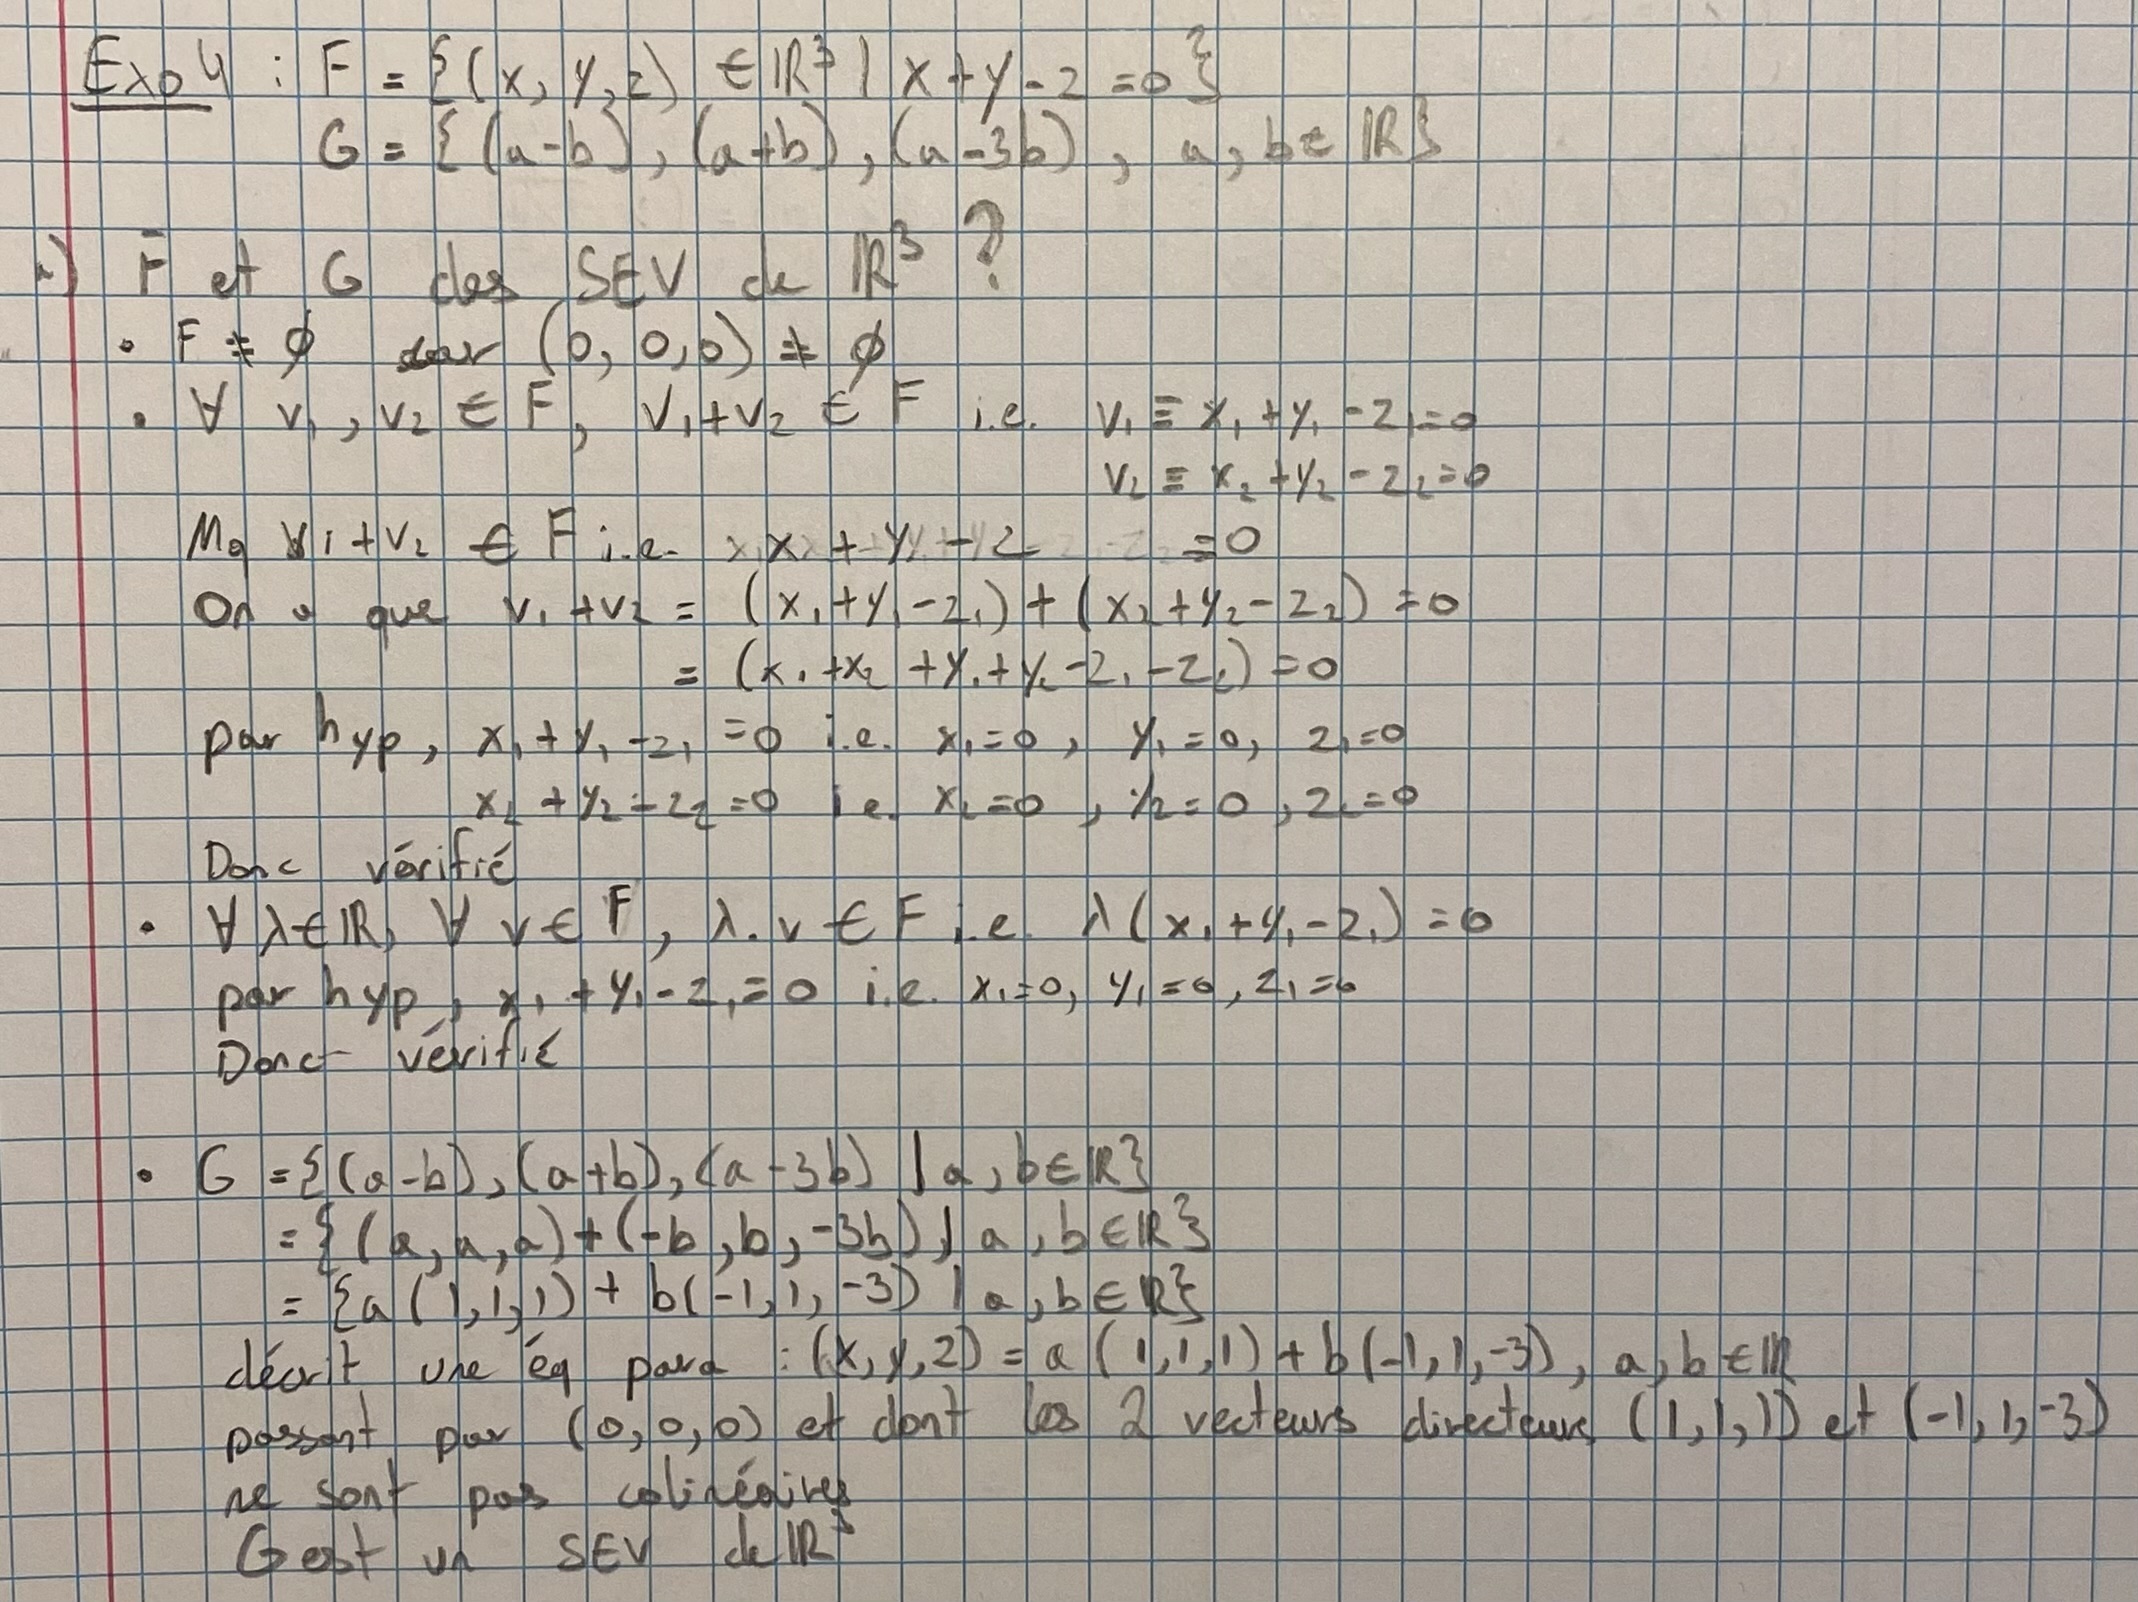 Exo 4 : F = {(x, y, z) ∈ ℝ³ | x + y - z = 0}
G = {(a-b), (a+b), (a-3b), a, b ∈ ℝ}
F et G des SEV de ℝ³ ?
• F ≠ ∅ car (0, 0, 0) ≠ ∅
• ∀ v₁, v₂ ∈ F, v₁ + v₂ ∈ F i.e. v₁ ≡ x₁ + y₁ - z₁ = 0
v₂ ≡ x₂ + y₂ - z₂ = 0
Mq v₁ + v₂ ∈ F i.e. x + y - z = 0
On a que v₁ + v₂ = (x₁ + y₁ - z₁) + (x₂ + y₂ - z₂) = 0
= (x₁ + x₂ + y₁ + y₂ - z₁ - z₂) = 0
par hyp, x₁ + y₁ - z₁ = 0 i.e. x₁ = 0, y₁ = 0, z₁ = 0
x₂ + y₂ - z₂ = 0 i.e. x₂ = 0, y₂ = 0, z₂ = 0
Donc vérifié
• ∀ λ ∈ ℝ, ∀ v ∈ F, λ.v ∈ F i.e. λ(x₁ + y₁ - z₁) = 0
par hyp, x₁ + y₁ - z₁ = 0 i.e. x₁ = 0, y₁ = 0, z₁ = 0
Donc vérifié
• G = {(a-b), (a+b), (a-3b) | a, b ∈ ℝ}
= {(a, a, a) + (-b, b, -3b) | a, b ∈ ℝ}
= {a(1, 1, 1) + b(-1, 1, -3) | a, b ∈ ℝ}
décrit une éq para : (x, y, z) = a(1, 1, 1) + b(-1, 1, -3), a, b ∈ ℝ
passant par (0, 0, 0) et dont les 2 vecteurs directeurs (1, 1, 1) et (-1, 1, -3)
ne sont pas colinéaires
G est un SEV de ℝ³